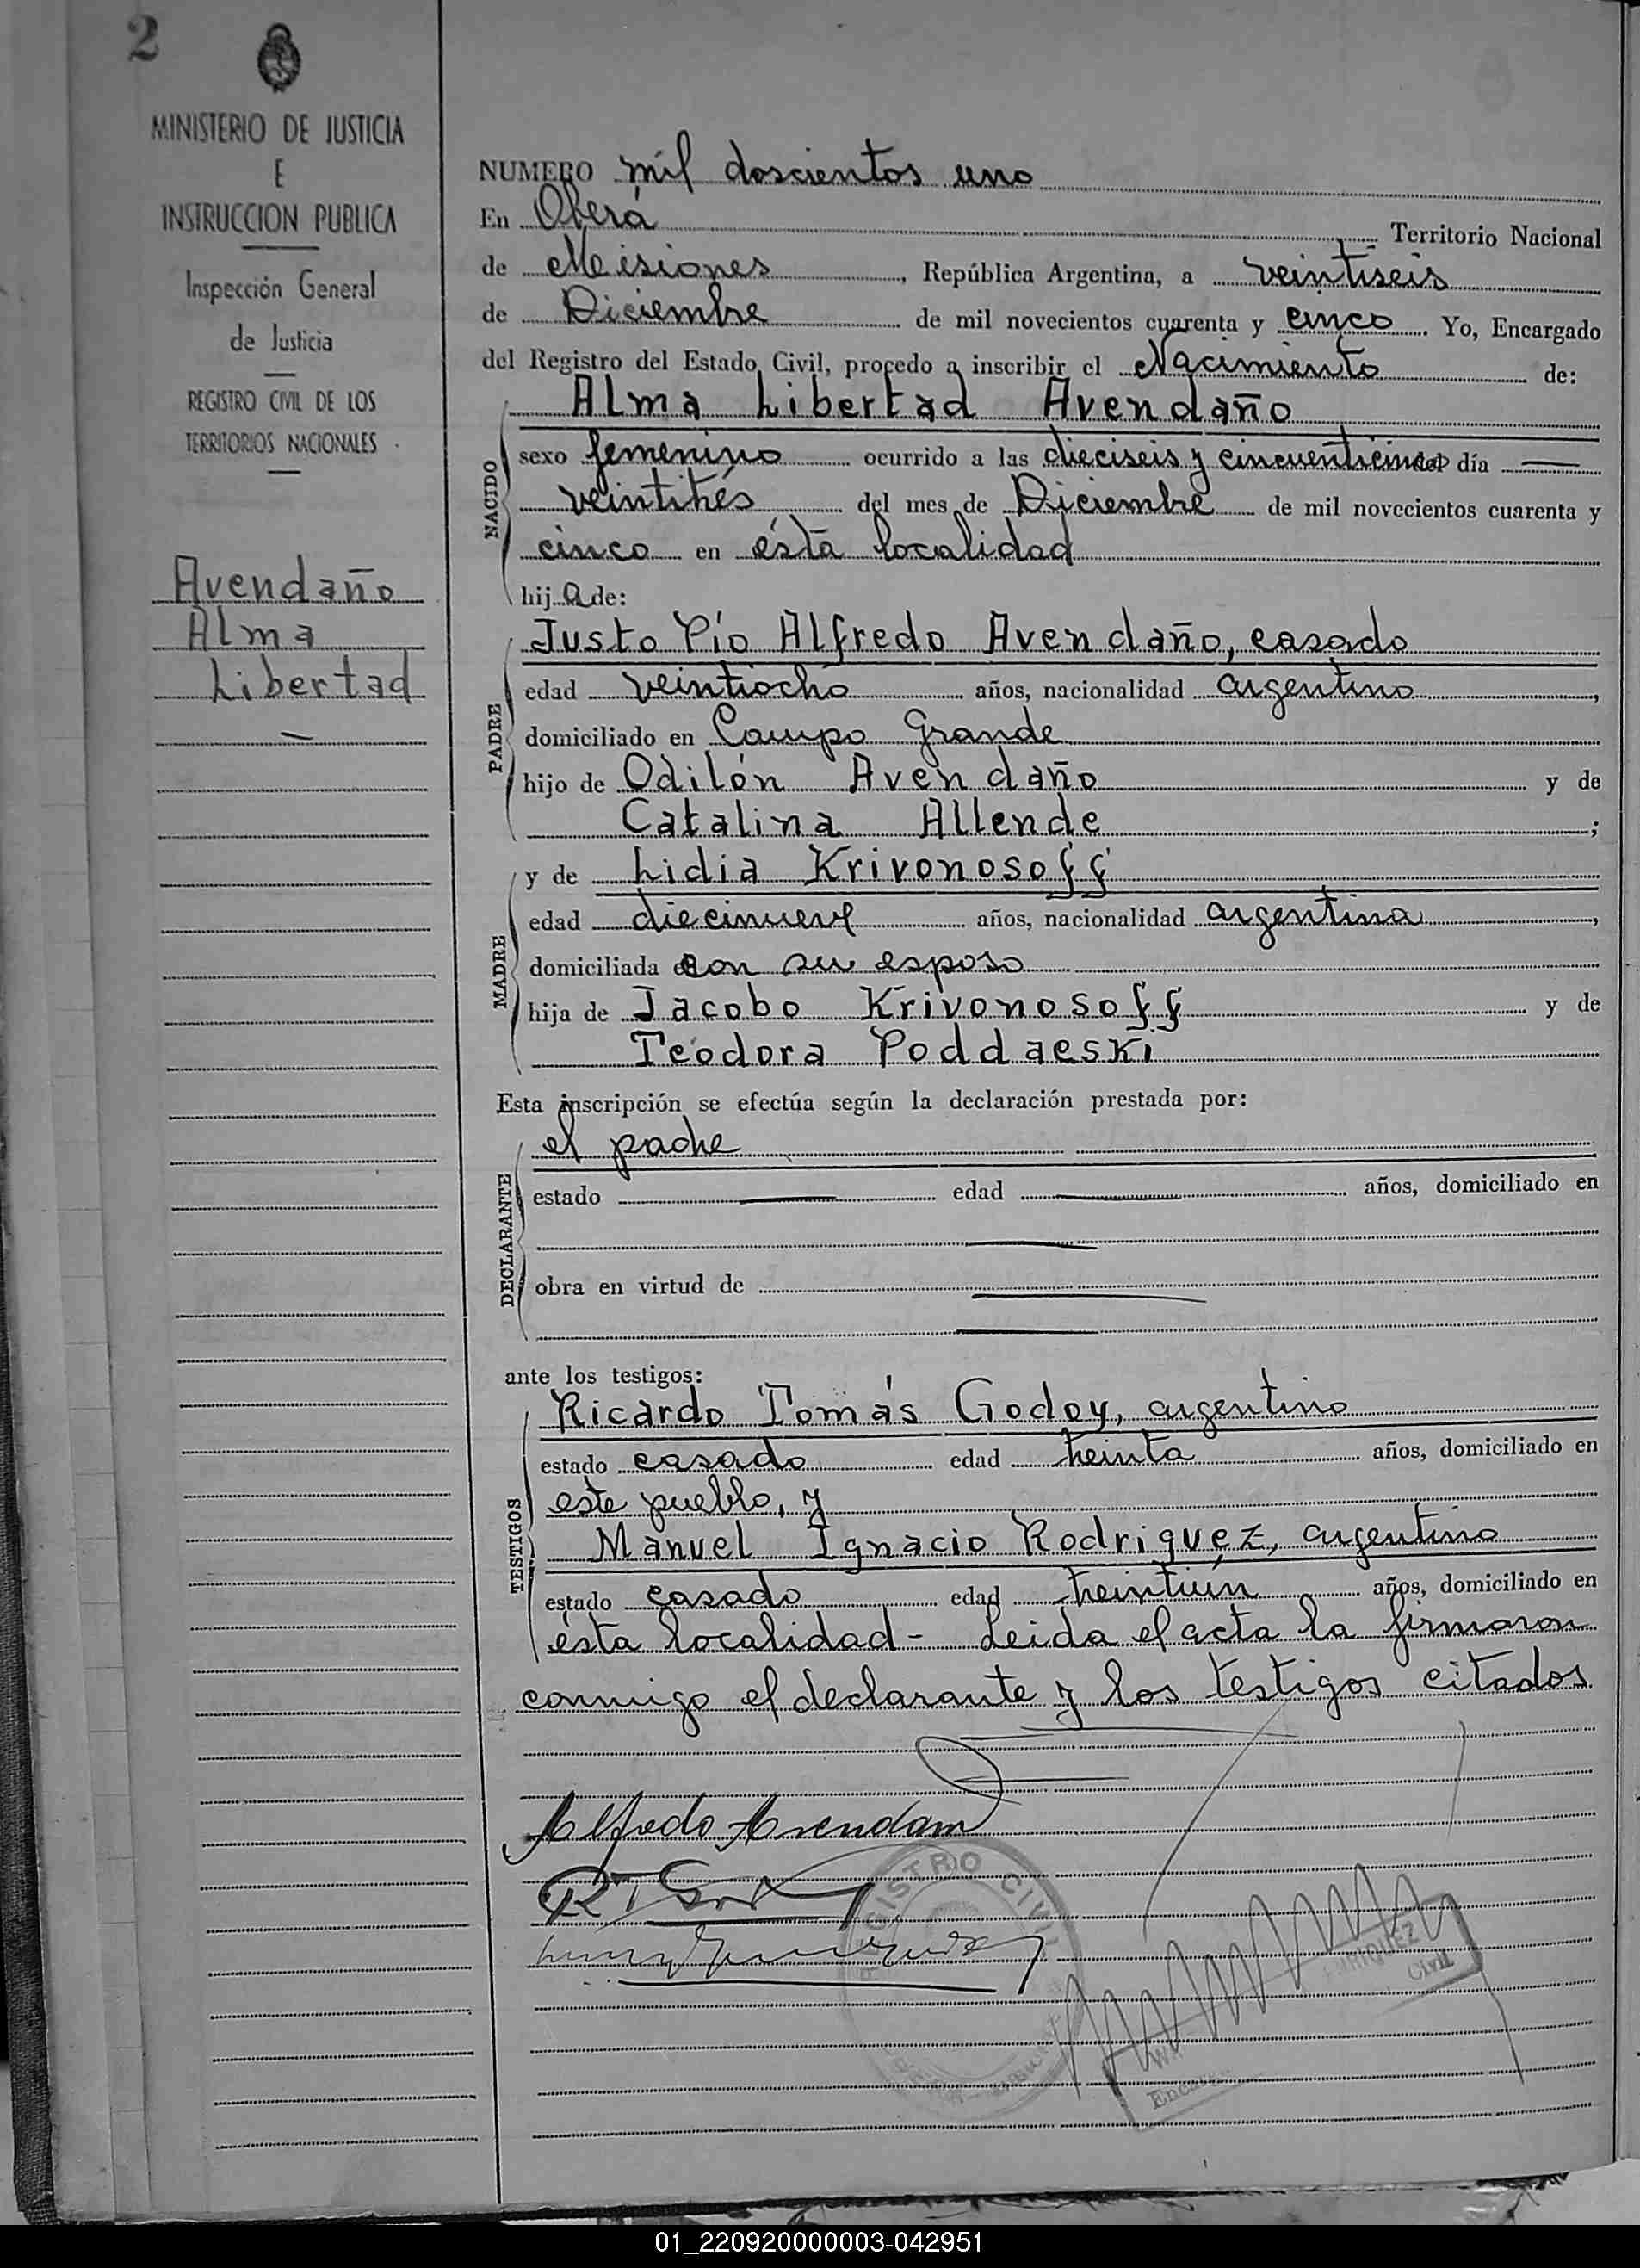 2
MINISTERIO DE JUSTICIA
E
INSTRUCCION PUBLICA
Inspección General
de Justicia
REGISTRO CIVIL DE LOS
TERRITORIOS NACIONALES
Avendaño
Alma
Libertad
NUMERO mil doscientos uno
En Oberá Territorio Nacional
de Misiones, República Argentina, a veintiseis
de Diciembre de mil novecientos cuarenta y cinco. Yo, Encargado
del Registro del Estado Civil, procedo a inscribir el Nacimiento de:
Alma Libertad Avendaño
NACIDO
sexo femenino ocurrido a las dieciseis y cincuenticinco del día —
veintitrés del mes de Diciembre de mil novecientos cuarenta y
cinco en ésta localidad
hija de:
Justo Pío Alfredo Avendaño, casado
PADRE
edad veintiocho años, nacionalidad argentino,
domiciliado en Campo Grande
hijo de Odilón Avendaño y de
Catalina Allende;
y de Lidia Krivonosoff
MADRE
edad diecinueve años, nacionalidad argentina,
domiciliada con su esposo
hija de Jacobo Krivonosoff y de
Teodora Poddaeski
Esta inscripción se efectúa según la declaración prestada por:
el padre
DECLARANTE
estado — edad — años, domiciliado en
obra en virtud de
ante los testigos:
Ricardo Tomás Godoy, argentino
TESTIGOS
estado casado edad treinta años, domiciliado en
este pueblo, y
Manuel Ignacio Rodriguez, argentino
estado casado edad treintiún años, domiciliado en
ésta localidad - Leida el acta la firmaron
conmigo el declarante y los testigos citados
Alfredo Avendaño
REGISTRO CIVIL
Civil
01_220920000003-042951